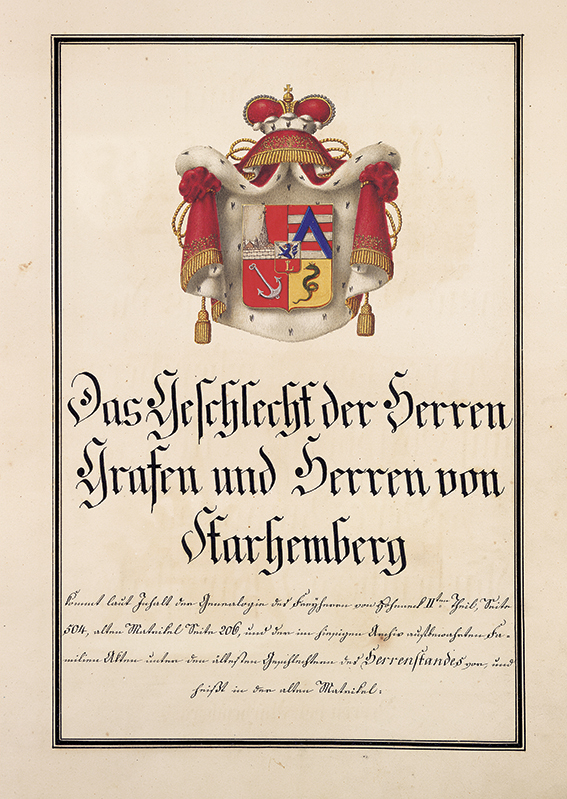 L
Das Geschlecht der Herren
Grafen und Herren von
Starhemberg
kommt laut Inhalt der Genealogie des Freyherrn von Hoheneck IIten Theil, Seite
504, alten Matrikel Seite 206, und der im hiesigen Archiv aufbewahrten Fa-
milien Akten unter den ältesten Geschlechtern des Herrenstandes vor, und
heißt in der alten Matrikel: